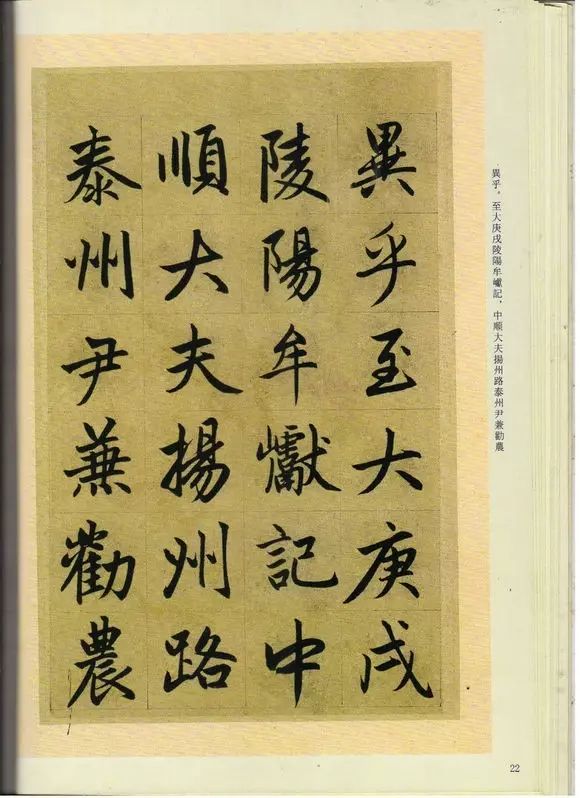 異乎至大庚戌
陵陽牟巘記中
順大夫揚州路
泰州尹兼勸農
異乎。至大庚戌陵陽牟巘記,中順大夫揚州路泰州尹兼勸農
22